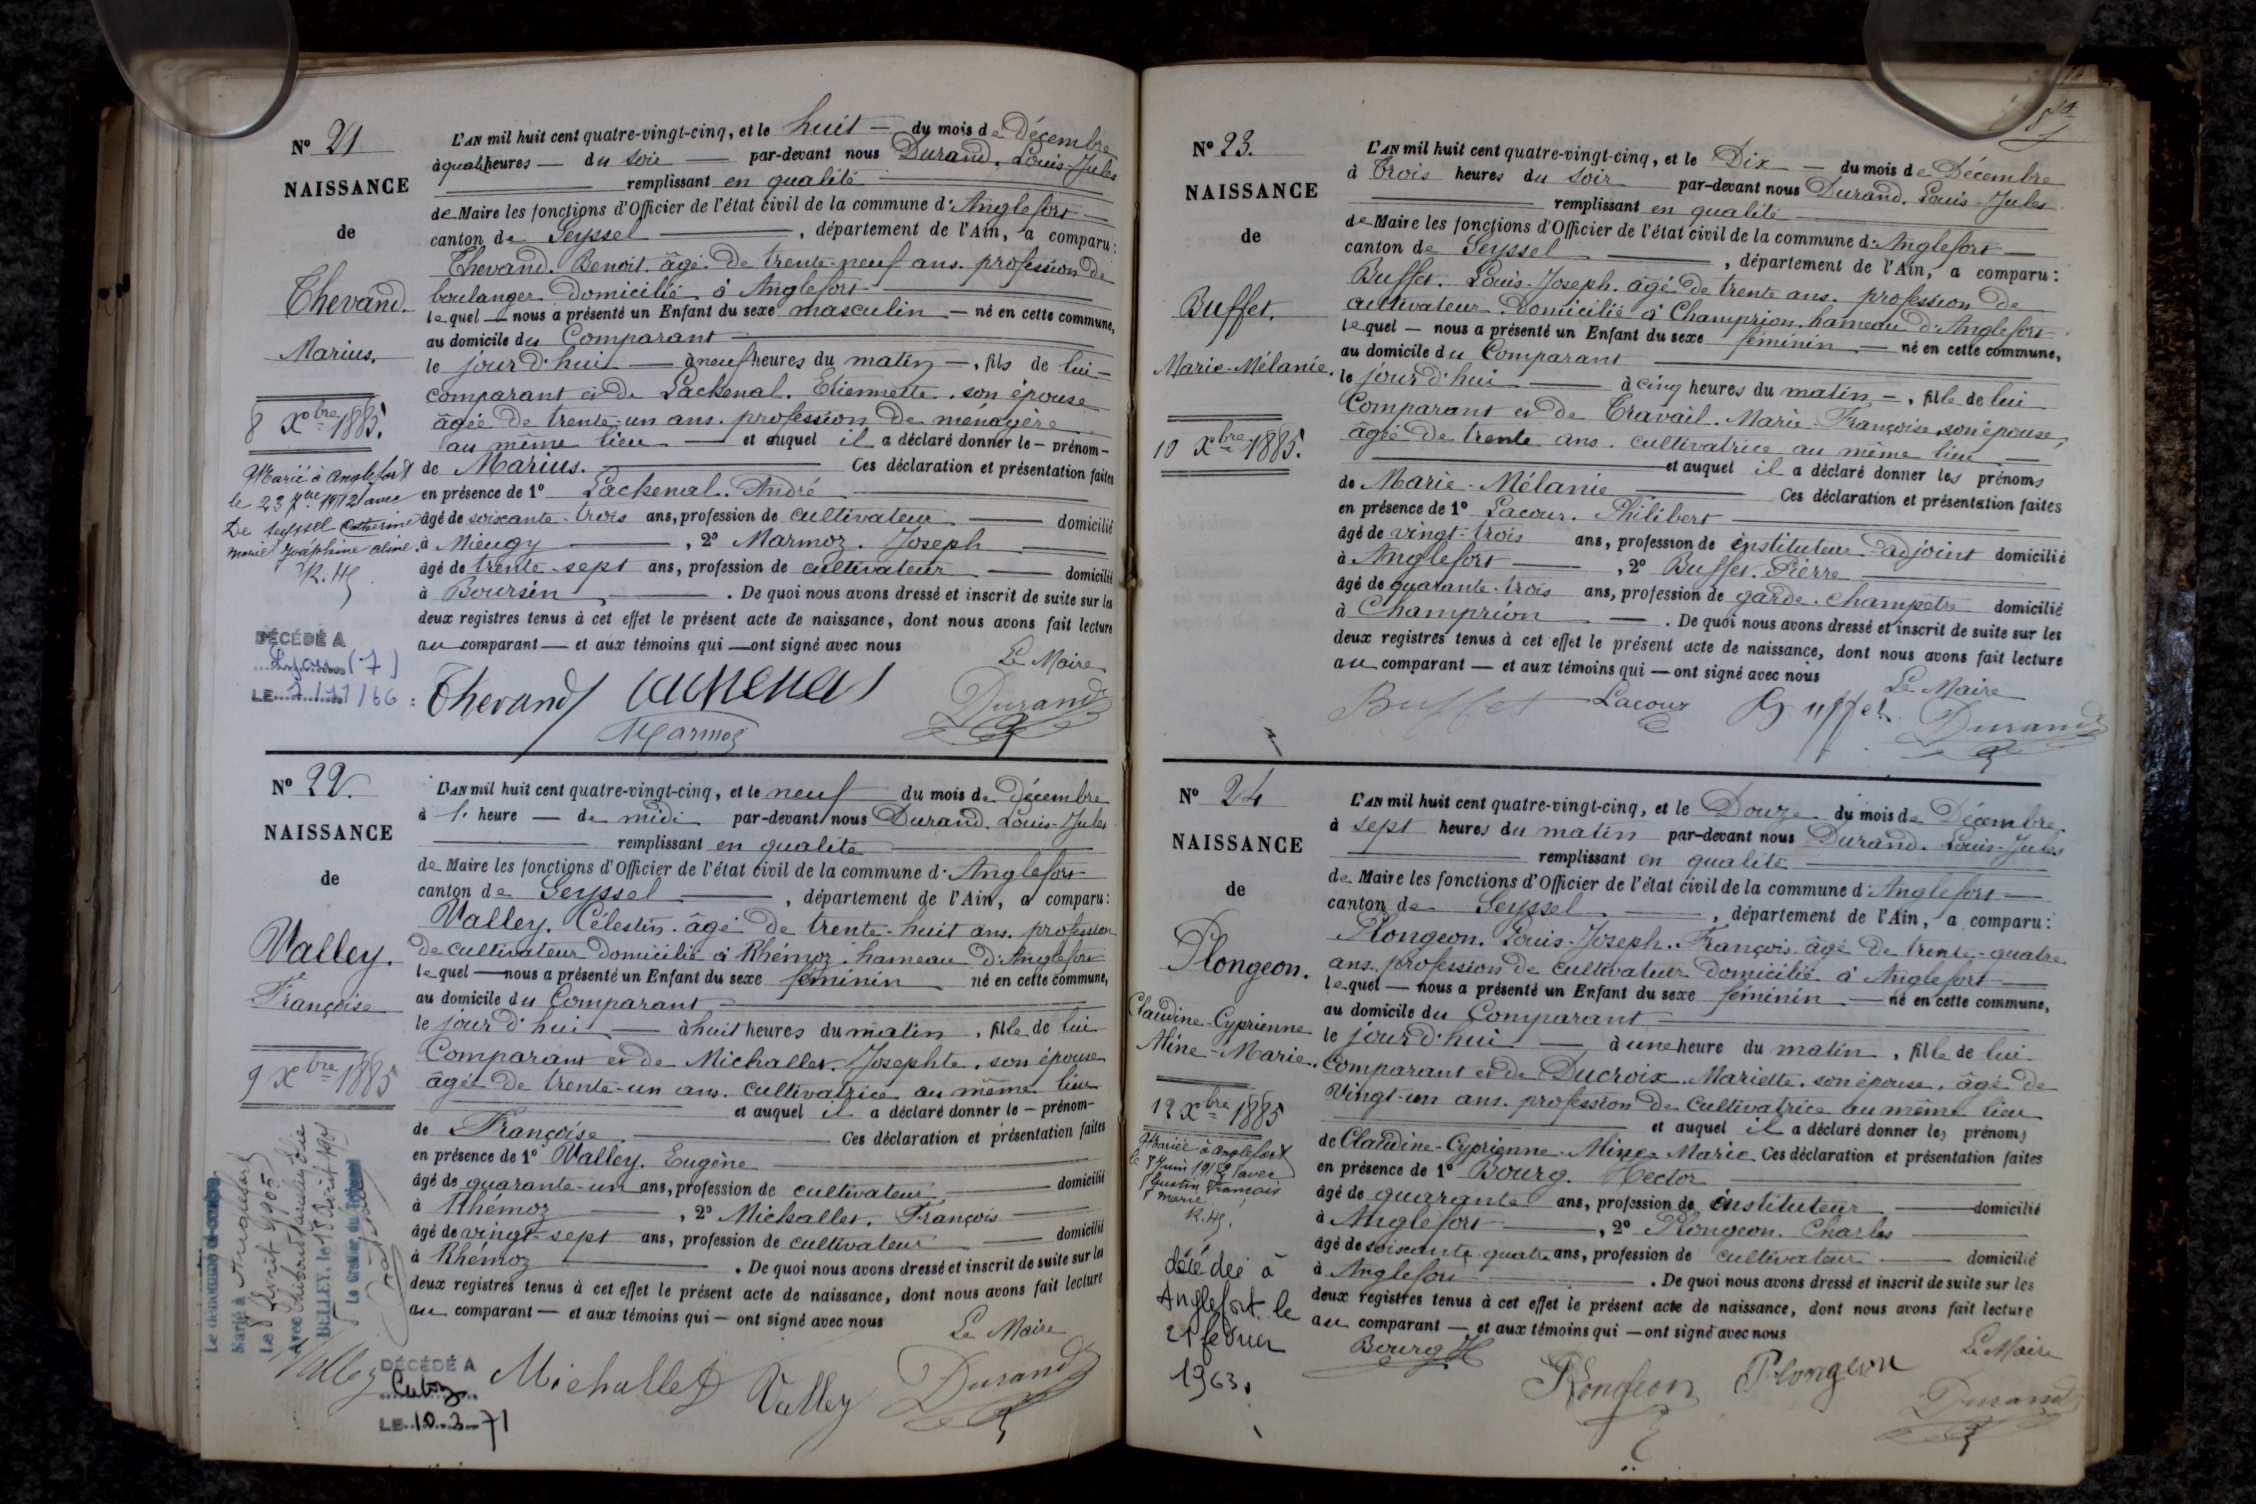 Nº 21
NAISSANCE
de
Thevand.
Marius.
8 Xbre 1885.
Marié à Anglefort
le 23 1912 avec
De Seyssel Catherine
Marie Joséphine Aline.
DÉCÉDÉ A
Lyon (7)
LE
L'AN mil huit cent quatre-vingt-cinq, et le huit — du mois de Décembre
à quatre heures — du soir — par-devant nous Durand. Louis-Jules
remplissant en qualité
de Maire les fonctions d'Officier de l'état civil de la commune d'Anglefort
canton de Seyssel —, département de l'Ain, a comparu:
Thevand. Benoit. âgé de trente-neuf ans. profession de
boulanger domicilié à Anglefort
lequel — nous a présenté un Enfant du sexe masculin — né en cette commune,
au domicile du Comparant
le jour d'hui — à neuf heures du matin —, fils de lui —
comparant et de Lachenal. Etiennette. son épouse
âgée de trente-un ans. profession de ménagère
au même lieu — et auquel il a déclaré donner le — prénom —
de Marius. — Ces déclaration et présentation faites
en présence de 1º Lachenal. André
âgé de soixante-trois ans, profession de cultivateur — domicilié
à Mieugy —, 2º Marmoz. Joseph
âgé de trente-sept ans, profession de cultivateur — domicilié
à Boursin —. De quoi nous avons dressé et inscrit de suite sur les
deux registres tenus à cet effet le présent acte de naissance, dont nous avons fait lecture
au comparant — et aux témoins qui — ont signé avec nous
Le Maire
Thevand Lachenal Durand
Marmoz
Nº 22.
NAISSANCE
de
Valley.
Françoise
9 Xbre 1885
Marié à Anglefort
Le 8 Avril 1905
avec
BELLEY, le
Le Greffier du Tribunal
DÉCÉDÉ A
Culoz
LE 10-3-71
L'AN mil huit cent quatre-vingt-cinq, et le neuf du mois de Décembre
à 1. heure — de midi par-devant nous Durand. Louis-Jules
remplissant en qualité
de Maire les fonctions d'Officier de l'état civil de la commune d'Anglefort
canton de Seyssel —, département de l'Ain, a comparu:
Valley. Célestin. âgé de trente-huit ans. profession
de cultivateur domicilié à Rhémoz. hameau d'Anglefort
lequel — nous a présenté un Enfant du sexe féminin né en cette commune,
au domicile du Comparant
le jour d'hui — à huit heures du matin, fille de lui
Comparant et de Michallet. Josephte. son épouse
âgée de trente-un ans. cultivatrice au même lieu
et auquel il a déclaré donner le — prénom —
de Françoise — Ces déclaration et présentation faites
en présence de 1º Valley. Eugène
âgé de quarante-un ans, profession de cultivateur — domicilié
à Rhémoz —, 2º Michallet. François
âgé de vingt-sept ans, profession de cultivateur — domicilié
à Rhémoz —. De quoi nous avons dressé et inscrit de suite sur les
deux registres tenus à cet effet le présent acte de naissance, dont nous avons fait lecture
au comparant — et aux témoins qui — ont signé avec nous
Le Maire
Valley Michallet Valley Durand
Nº 23.
NAISSANCE
de
Buffet.
Marie-Mélanie.
10 Xbre 1885.
L'AN mil huit cent quatre-vingt-cinq, et le Dix — du mois de Décembre
à Trois heures du soir par-devant nous Durand. Louis-Jules
remplissant en qualité
de Maire les fonctions d'Officier de l'état civil de la commune d'Anglefort
canton de Seyssel —, département de l'Ain, a comparu:
Buffet. Louis-Joseph. âgé de trente ans. profession de
cultivateur. domicilié à Champrion. hameau d'Anglefort
lequel — nous a présenté un Enfant du sexe féminin — né en cette commune,
au domicile du Comparant
le jour d'hui — à cinq heures du matin —, fille de lui
Comparant et de Travail. Marie-Françoise, son épouse,
âgée de trente ans. cultivatrice au même lieu —
et auquel il a déclaré donner les prénoms
de Marie-Mélanie — Ces déclaration et présentation faites
en présence de 1º Lacour. Philibert
âgé de vingt-trois ans, profession de instituteur-adjoint domicilié
à Anglefort —, 2º Buffet. Pierre
âgé de quarante-trois ans, profession de garde-champêtre domicilié
à Champrion —. De quoi nous avons dressé et inscrit de suite sur les
deux registres tenus à cet effet le présent acte de naissance, dont nous avons fait lecture
au comparant — et aux témoins qui — ont signé avec nous
Le Maire
Buffet Lacour Buffet Durand
Nº 24
NAISSANCE
de
Plongeon.
Claudine-Cyprienne
Aline-Marie.
12 Xbre 1885
Mariée à Anglefort
le 8 Juin avec
François
Marie
décédée à
Anglefort le
21 février
1963.
L'AN mil huit cent quatre-vingt-cinq, et le Douze du mois de Décembre
à sept heures du matin par-devant nous Durand. Louis-Jules
remplissant en qualité
de Maire les fonctions d'Officier de l'état civil de la commune d'Anglefort
canton de Seyssel —, département de l'Ain, a comparu:
Plongeon. Louis-Joseph-François. âgé de trente-quatre
ans. profession de cultivateur domicilié à Anglefort
lequel — nous a présenté un Enfant du sexe féminin — né en cette commune,
au domicile du Comparant
le jour d'hui — à une heure du matin, fille de lui
Comparant et de Ducroix. Mariette. son épouse. âgé de
vingt-un ans. profession de cultivatrice au même lieu
et auquel il a déclaré donner les prénoms
de Claudine-Cyprienne-Aline-Marie Ces déclaration et présentation faites
en présence de 1º Bourg. Hector
âgé de quarante ans, profession de instituteur — domicilié
à Anglefort —, 2º Plongeon. Charles
âgé de soixante quatre ans, profession de cultivateur — domicilié
à Anglefort —. De quoi nous avons dressé et inscrit de suite sur les
deux registres tenus à cet effet le présent acte de naissance, dont nous avons fait lecture
au comparant — et aux témoins qui — ont signé avec nous
Le Maire
Bourg H Plongeon Plongeon Durand